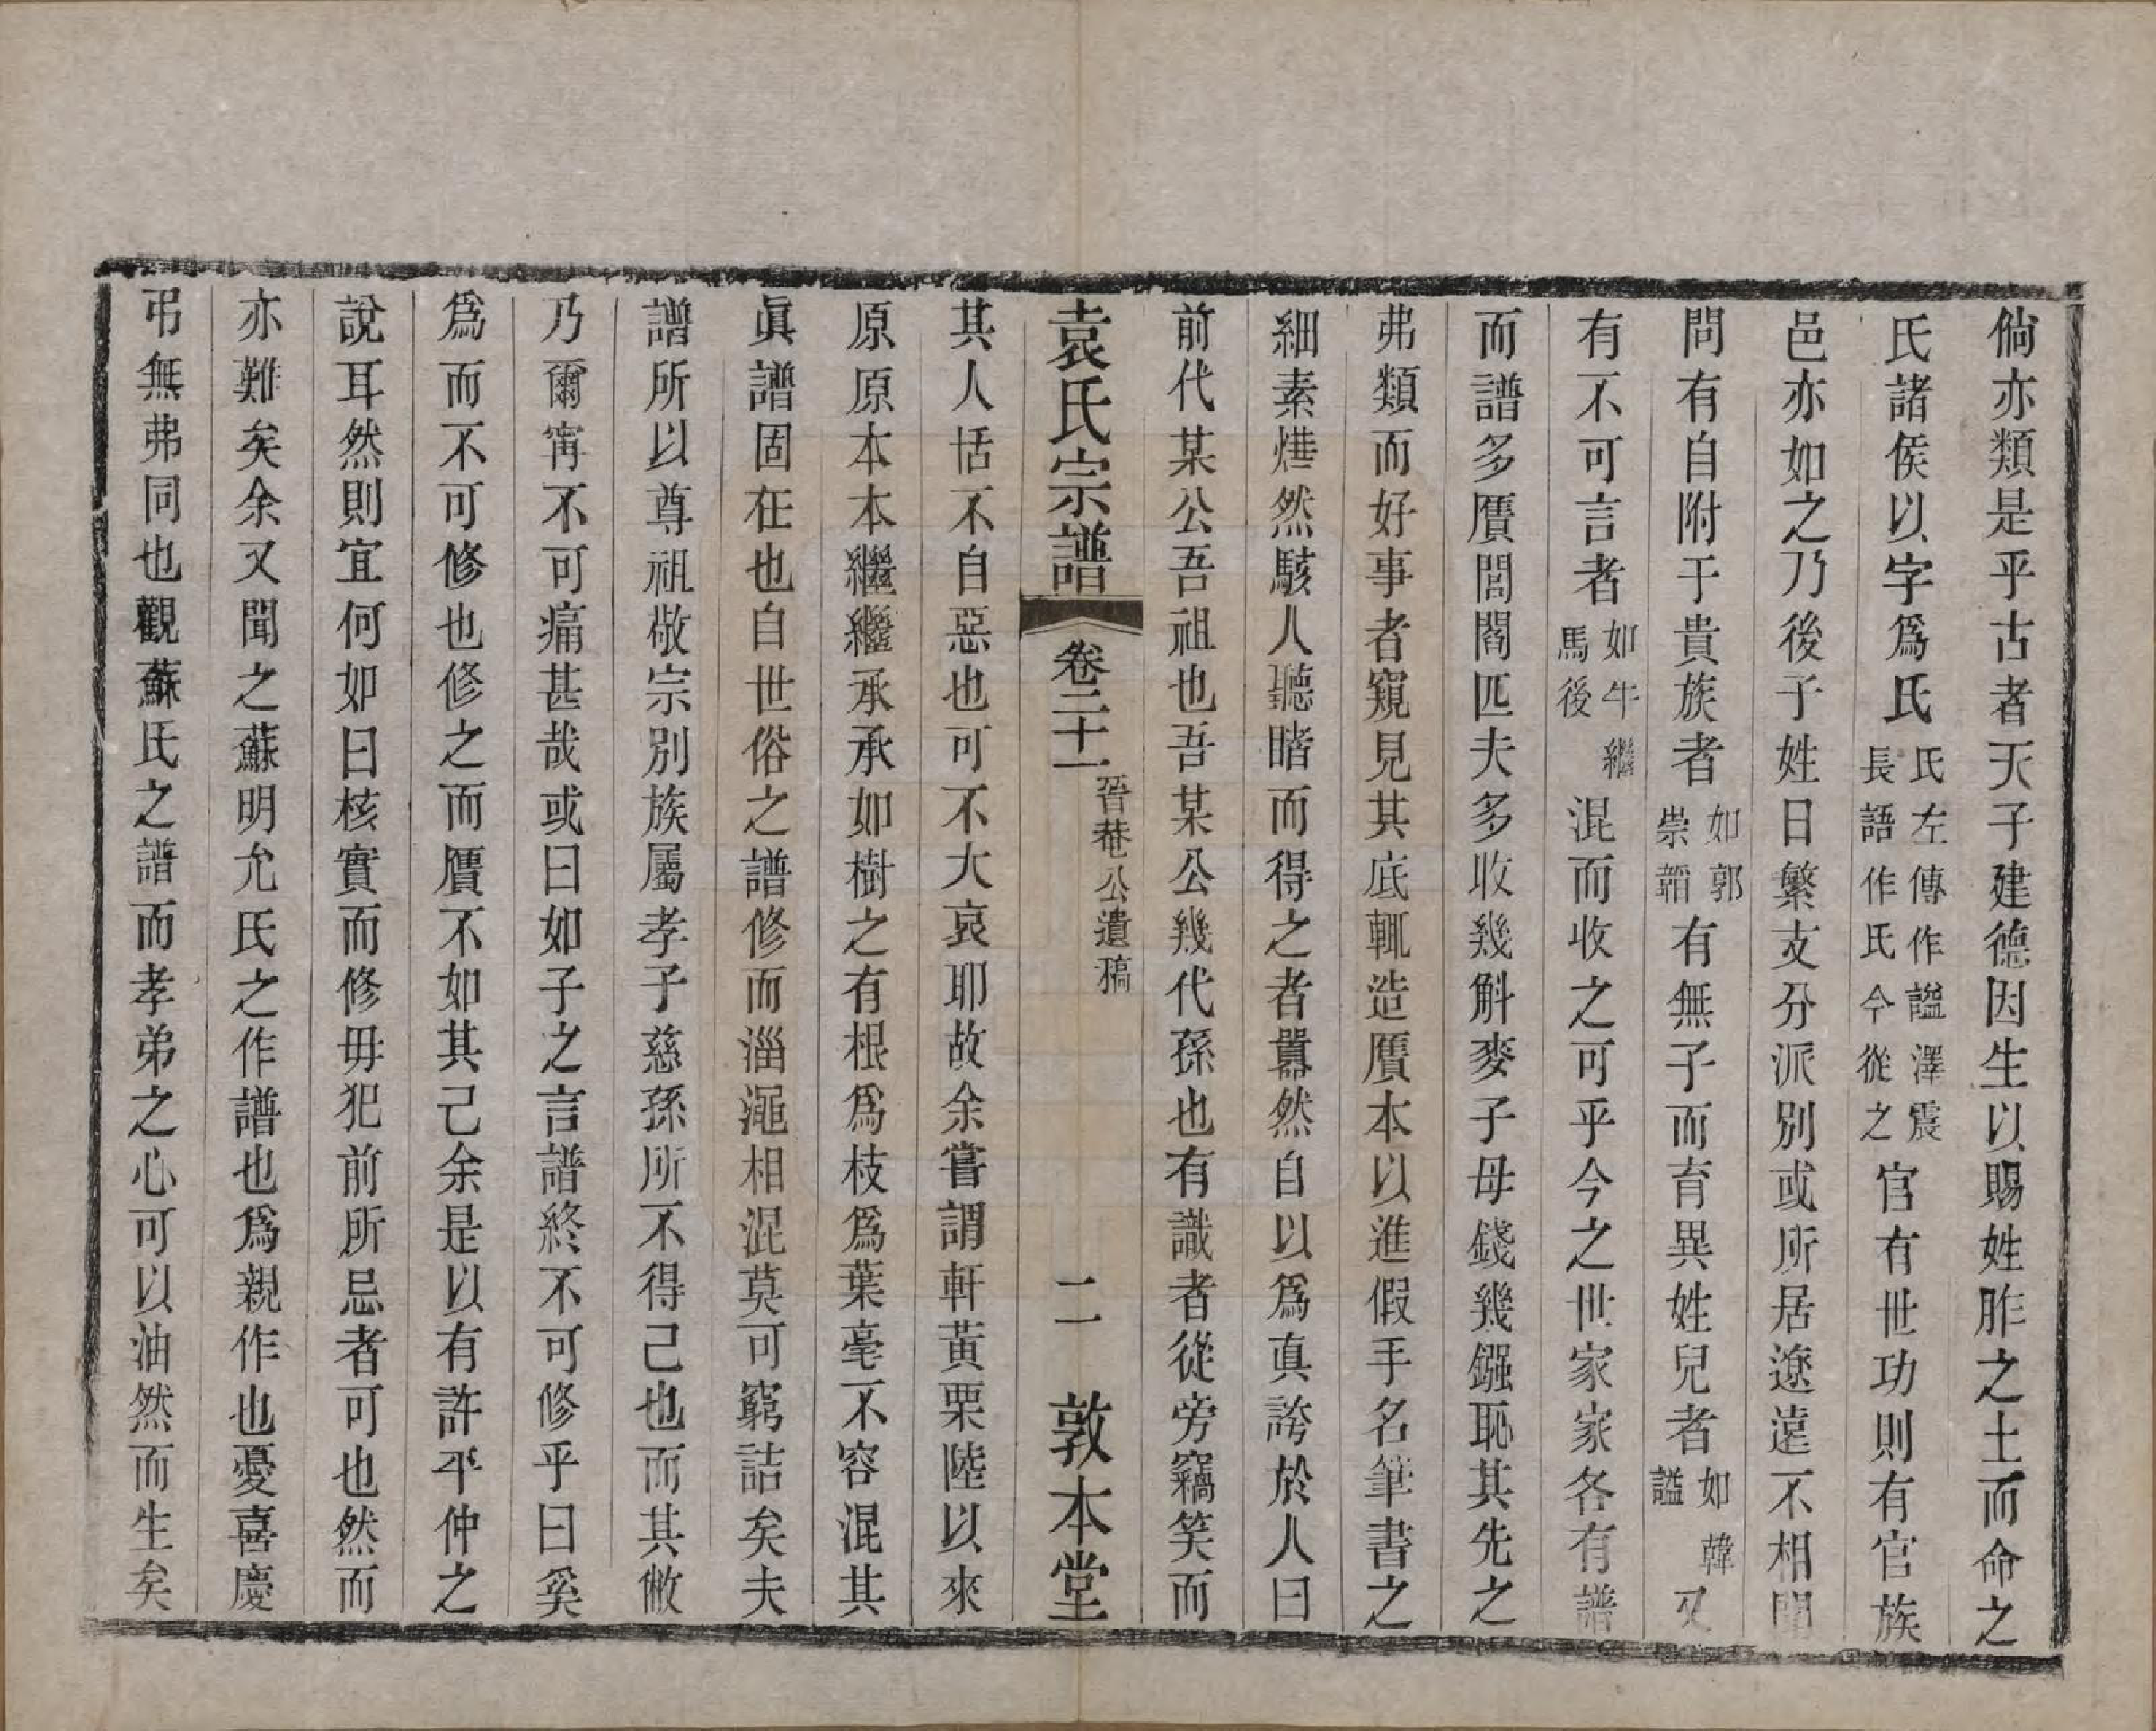 倘亦類是乎古者天子建德因生以賜姓胙之土而命之
氏諸侯以字爲氏氏左傳作謚澤震長語作氏今從之官有世功則有官族
邑亦如之乃後子姓日繁支分派別或所居遼遠不相聞
問有自附于貴族者如郭崇韜有無子而育異姓兒者如韓謐又
有不可言者如牛繼馬後混而收之可乎今之世家家各有譜
而譜多贋閭閻匹夫多收幾斛麥子母錢幾鏹恥其先之
弗類而好事者窺見其底輒造贋本以進假手名筆書之
細素燁然駭人聽睹而得之者囂然自以爲真誇於人曰
前代某公吾祖也吾某公幾代孫也有識者從旁竊笑而
袁氏宗譜 卷二十一 晉菴公遺稿 二 敦本堂
其人恬不自惡也可不大哀耶故余嘗謂軒黃栗陸以來
原原本本繼繼承承如樹之有根爲枝爲葉毫不容混其
眞譜固在也自世俗之譜修而淄澠相混莫可窮詰矣夫
譜所以尊祖敬宗別族屬孝子慈孫所不得已也而其敝
乃爾甯不可痛甚哉或曰如子之言譜終不可修乎曰奚
爲而不可修也修之而贋不如其已余是以有許平仲之
說耳然則宜何如曰核實而修毋犯前所忌者可也然而
亦難矣余又聞之蘇明允氏之作譜也爲親作也憂喜慶
弔無弗同也觀蘇氏之譜而孝弟之心可以油然而生矣